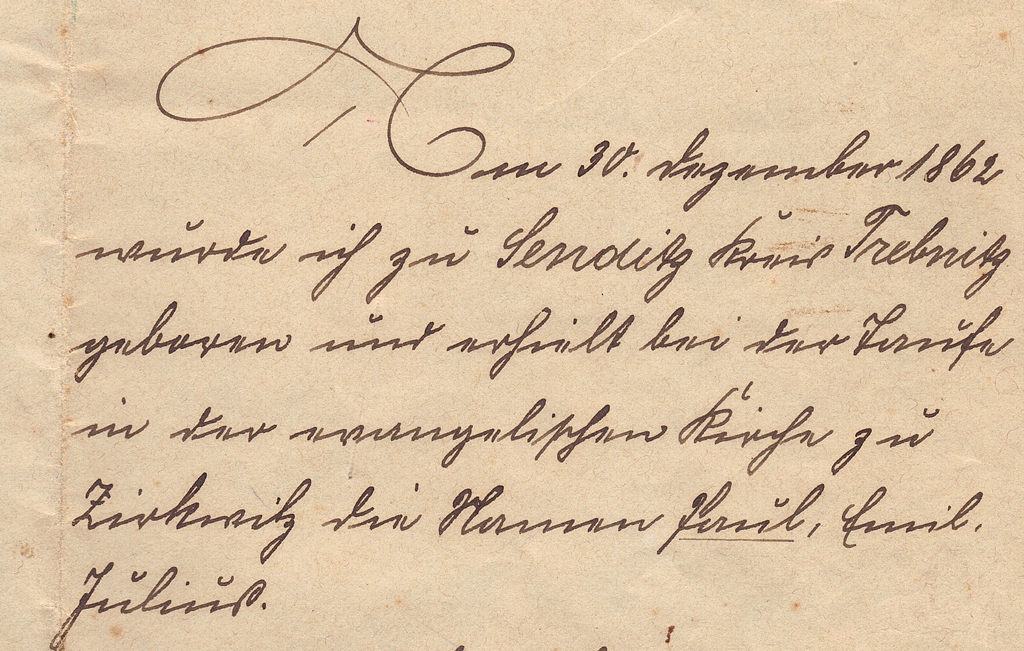 Am 30. Dezember 1862
wurde ich zu Senditz Kreis Trebnitz
geboren und erhielt bei der Taufe
in der evangelischen Kirche zu
Zirkwitz die Namen Paul, Emil.
Julius.